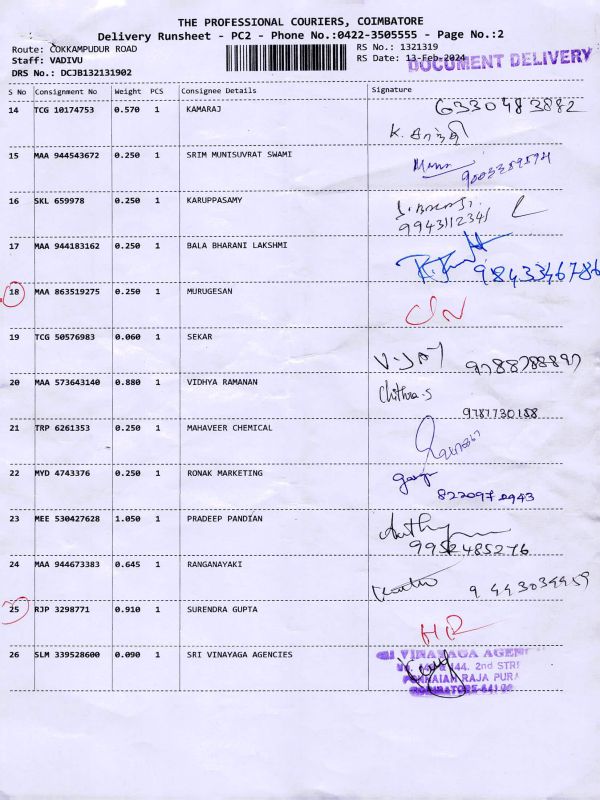 THE PROFESSIONAL COURIERS, COIMBATORE
Delivery Runsheet - PC2 - Phone No.:0422-3505555 - Page No.:2
Route: COKKAMPUDUR ROAD
RS No.: 1321319
Staff: VADIVU
RS Date: 13-Feb-2024
DOCUMENT DELIVERY
DRS No.: DCJB132131902
S No Consignment No Weight PCS Consignee Details Signature
14 TCG 10174753 0.570 1 KAMARAJ 6330483882
K. காந்தி
15 MAA 944543672 0.250 1 SRIM MUNISUVRAT SWAMI
16 SKL 659978 0.250 1 KARUPPASAMY
9943112341
17 MAA 944183162 0.250 1 BALA BHARANI LAKSHMI
9843346786
18 MAA 863519275 0.250 1 MURUGESAN
CN
19 TCG 50576983 0.060 1 SEKAR
9788788897
20 MAA 573643140 0.880 1 VIDHYA RAMANAN Chithra.S
9787730188
21 TRP 6261353 0.250 1 MAHAVEER CHEMICAL
22 MYD 4743376 0.250 1 RONAK MARKETING
8220970943
23 MEE 530427628 1.050 1 PRADEEP PANDIAN
9952485276
24 MAA 944673383 0.645 1 RANGANAYAKI
9443034959
25 RJP 3298771 0.910 1 SURENDRA GUPTA
HR
26 SLM 339528600 0.090 1 SRI VINAYAGA AGENCIES
VINAYAGA AGEN
144. 2nd STRE
PONNAIAH RAJA PURA